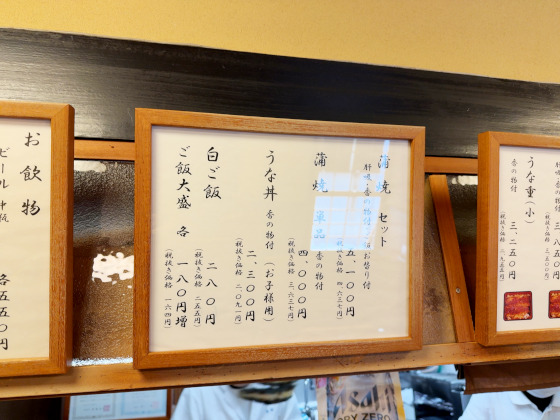 お飲物
ビール 中瓶
各五五〇円
蒲焼 セット
肝吸・香の物付
五、一〇〇円
(税抜き価格 四、六三七円)
蒲焼 単品 香の物付
四、〇〇〇円
(税抜き価格 三、六三七円)
うな丼 香の物付 (お子様用)
二、三〇〇円
(税抜き価格 二、〇九一円)
白ご飯 二八〇円
(税抜き価格 二五五円)
ご飯大盛 各 一八〇円増
(税抜き価格 一六四円)
肝吸・香の物付
三、八五〇円
(税抜き価格 三、五〇〇円)
うな重(小)
香の物付
三、二五〇円
(税抜き価格 二、九五五円)
DRY ZERO